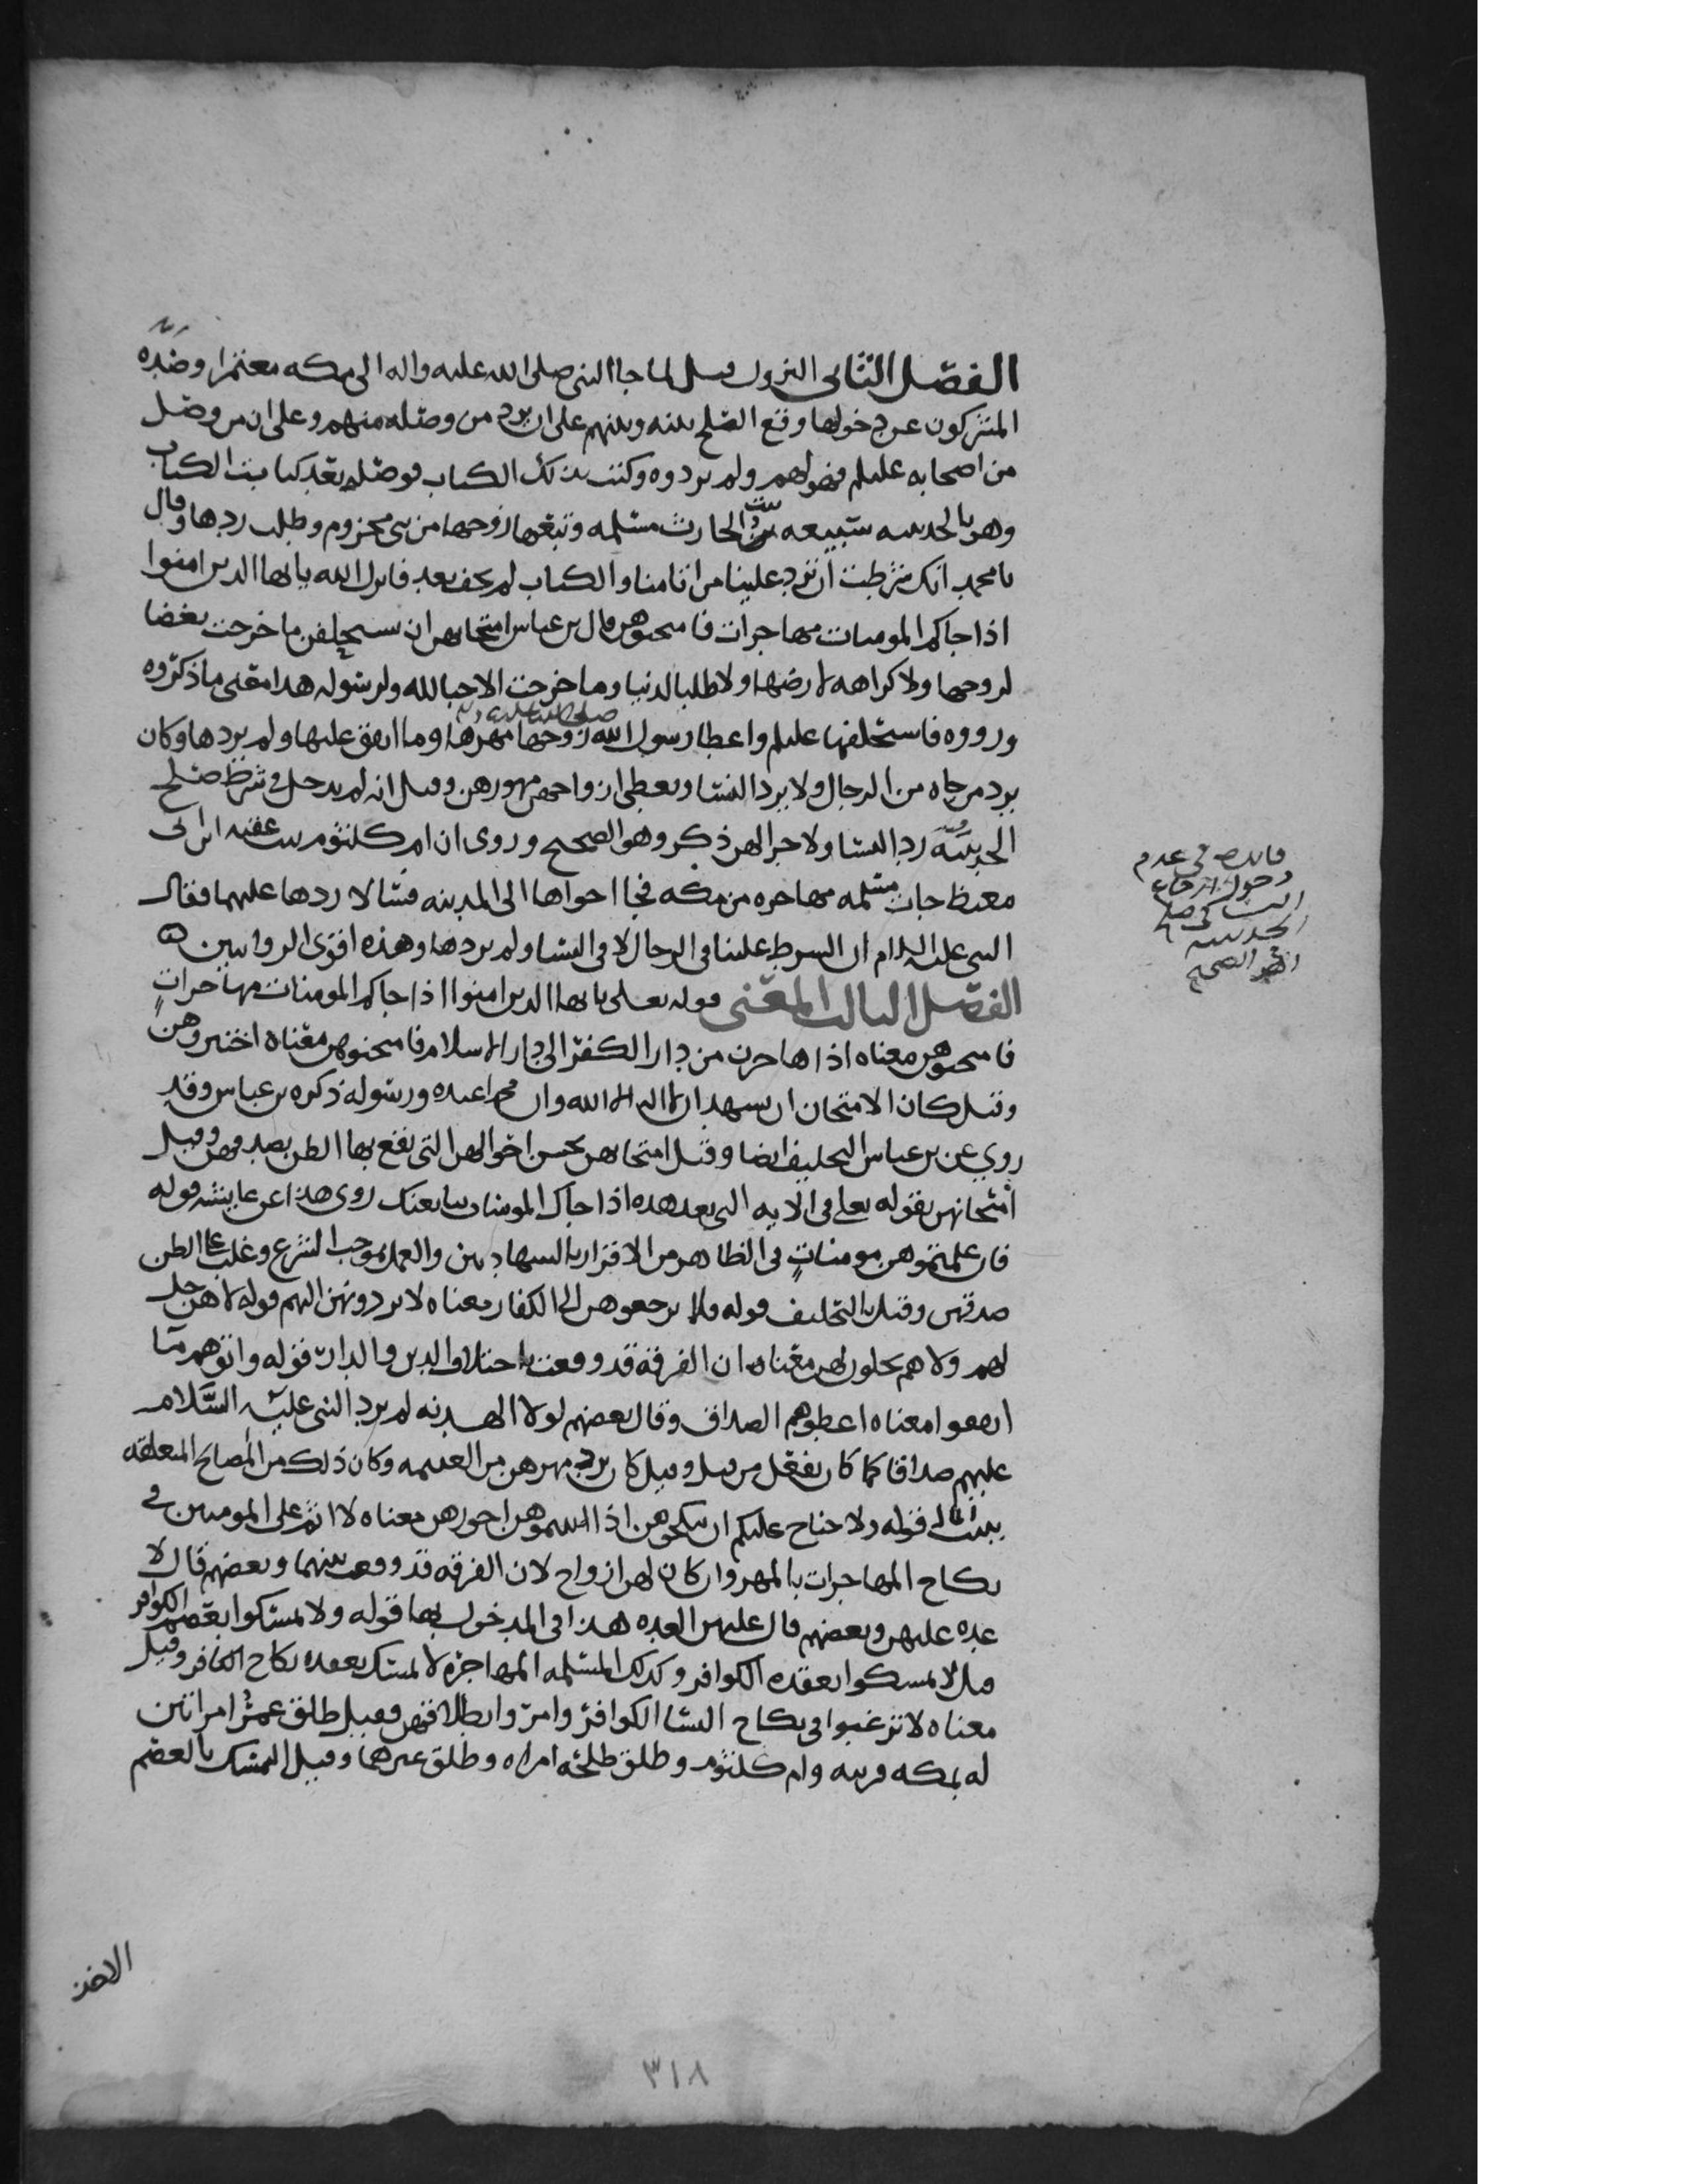 الفصل الثاني النزول قيل لما جا النبي صلى الله عليه واله الى مكه معتمرا وصده
المشركون عن دخولها وقع الصلح بينه وبينهم على ان يرد من وصله منهم وعلى ان من وصل
من اصحابه عليلم فهو لهم ولم يردوه وكتب بذلك الكتاب فوصله بعد كتابة الكتاب
وهو بالحديبيه سبيعه بنت الحارث مسلمه وتبعها زوجها من بني مخزوم وطلب ردها وقال
يا محمد انك شرطت ان ترد علينا من اتا منا والكتاب لم يجف بعد فانزل الله يا يها الذين امنوا
اذا جاكم المومنات مهاجرات فامتحنوهن قال بن عباس امتحانهن ان يستحلفن ما خرجت بغضا
لزوجها ولا كراهه لارضها ولا طلبا لدنيا وما خرجت الا حبا لله ولرسوله هذا معنى ما ذكروه
ورووه فاستحلفها عليلم واعطا رسول الله صلى الله عليه زوجها مهرها وما انفق عليها ولم يردها وكان
يرد من جاه من الرجال ولا يرد النسا ويعطي ازواجهن مهورهن وقيل انه لم يدخل في شرط صلح
الحديبيه رد النسا ولا جرا لهن ذكر وهو الصحيح وروى ان ام كلثوم بنت عقبه ابن ابي
معيط جات مسلمه مهاجره من مكه فجا اخواها الى المدينه فسالا ردها عليهما فقال
النبي عليه السلام ان الشرط علينا في الرجال لا في النسا ولم يردها وهذه اقوى الروايتين
الفصل الثالث المعنى قوله تعلى يا يها الذين امنوا اذا جاكم المومنات مهاجرات
فامتحنوهن معناه اذا هاجرن من دار الكفر الى دار الاسلام فامتحنوهن معناه اختبروهن
وقيل كان الامتحان ان يشهد ان لا اله الا الله وان محمدا عبده ورسوله ذكره بن عباس وقد
روي عن بن عباس التحليف ايضا وقيل امتحانهن بحسن احوالهن التي يقع بها الظن بصدقهن وقيل
امتحانهن بقوله تعلى في الايه التي بعد هذه اذا جاك المومنات يبايعنك روى هذا عن عايشه قوله
فان علمتموهن مومنات في الظاهر من الاقرار بالشهادتين والعمل بموجب الشرع وغلب على الظن
صدقهن وقيل بالتحليف قوله ولا ترجعوهن الى الكفار معناه لا تردونهن اليهم قوله لا هن حل
لهم ولا هم يحلون لهن معناه ان الفرقه قد وقعت باختلاف الدين والدار قوله واتوهم ما
انفقوا معناه اعطوهم الصداق وقال بعضهم لولا الهدنه لم يرد النبي عليه السلام
عليهم صداقا كما كان يفعل من قبل وقيل كان يرد مهرهن من الغنيمه وكان ذلك من المصالح المتعلقه
ببيت المال قوله ولا جناح عليكم ان تنكحوهن اذا اتيتموهن اجورهن معناه لا اثم على المومنين في
نكاح المهاجرات بالمهر وان كان لهن ازواج لان الفرقه قد وقعت بينهما وبعضهم قال لا
عده عليهن وبعضهم قال عليهن العده هذا في المدخول بها قوله ولا تمسكوا بعصم الكوافر
قيل لا تمسكوا بعقده الكوافر وكذلك المسلمه المهاجره لا تمسك بعقده نكاح الكافر وقيل
معناه لا ترغبوا في نكاح النسا الكوافر وامروا بطلاقهن وقيل طلق عمر امراتين
له بمكه قريبه وام كلثوم وطلق طلحه امراه وطلق غيرهما وقيل التمسك بالعصم
فايده في عدم
دخول ارجاع
النسا في صلح
الحديبيه
الصحيح
الاخذ
٣١٨